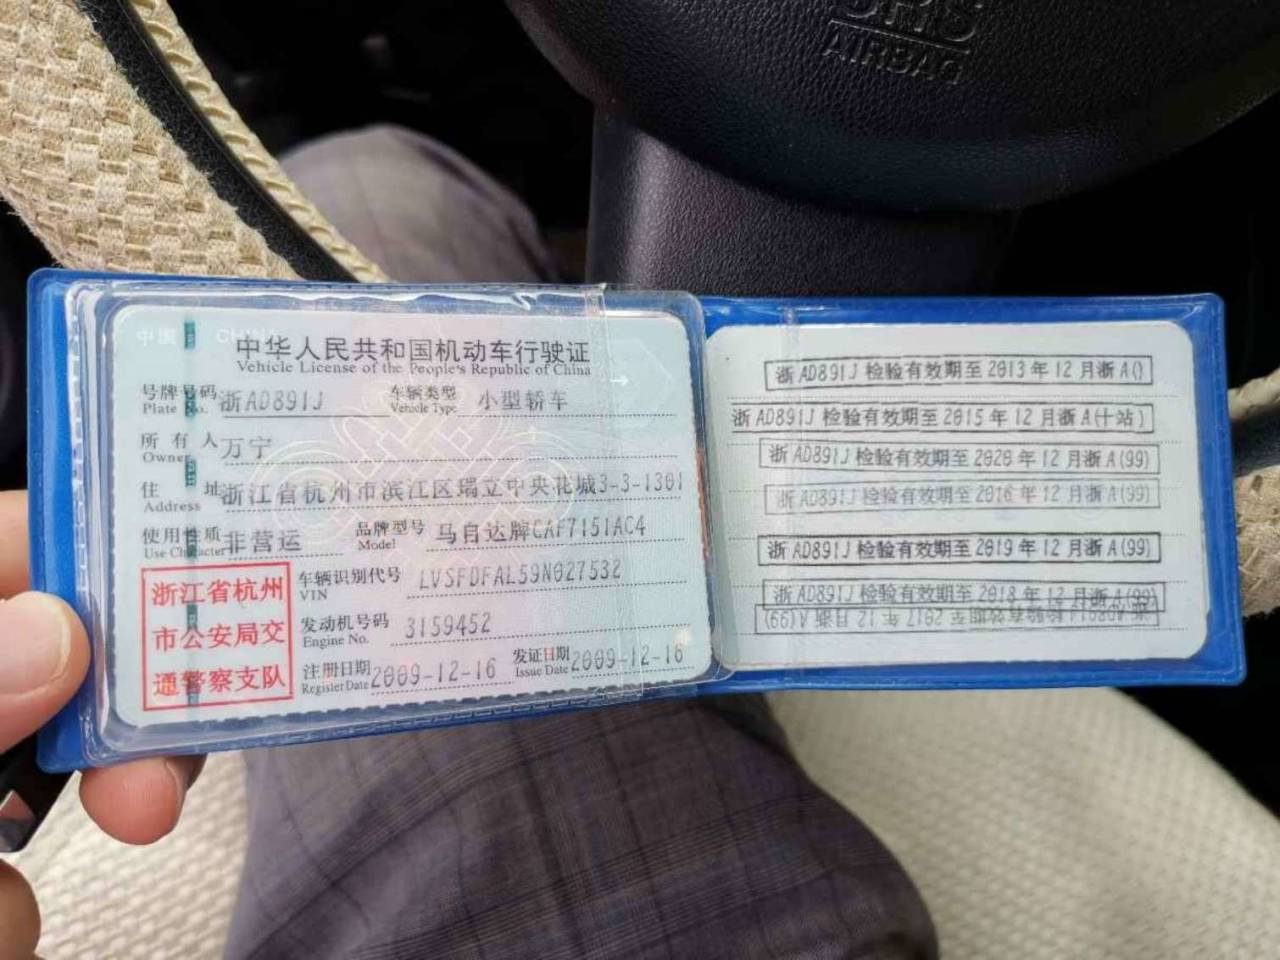 SRS
AIRBAG
中国 CHINA
中华人民共和国机动车行驶证
Vehicle License of the People's Republic of China
号牌号码 浙AD891J 车辆类型 小型轿车
Plate No. Vehicle Type
所有人 万宁
Owner
住址 浙江省杭州市滨江区瑞立中央花城3-3-1301
Address
使用性质 非营运 品牌型号 马自达牌CAF7151AC4
Use Character Model
浙江省杭州
市公安局交
通警察支队
车辆识别代号 LVSFDFAL59N027532
VIN
发动机号码 3159452
Engine No.
注册日期 2009-12-16 发证日期 2009-12-16
Register Date Issue Date
浙AD891J检验有效期至2013年12月浙A()
浙AD891J检验有效期至2015年12月浙A(十站)
浙AD891J检验有效期至2020年12月浙A(99)
浙AD891J检验有效期至2016年12月浙A(99)
浙AD891J检验有效期至2019年12月浙A(99)
浙AD891J检验有效期至2018年12月浙A(99)
浙AD891J检验有效期至2017年12月浙A(99)